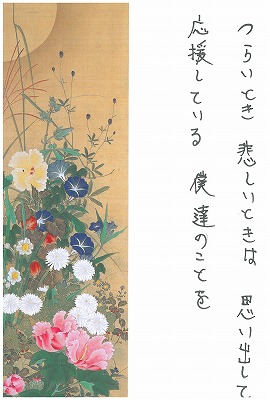 つらいとき 悲しいときは 思い出して
応援している 僕達のことを